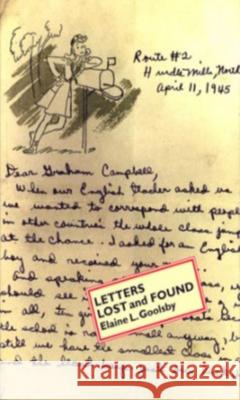 Route #2
Hurdle Mills, North
April 11, 1945
Dear Graham Campbell,
When our English teacher asked us
we wanted to correspond with people
in other countries the whole class jump
at the chance. I asked for an English
boy and received your
and speaking
should see
in all, ten gi
the school is no small anyway, b
till we have the smallest class
and the
LETTERS
LOST and FOUND
Elaine L. Goolsby